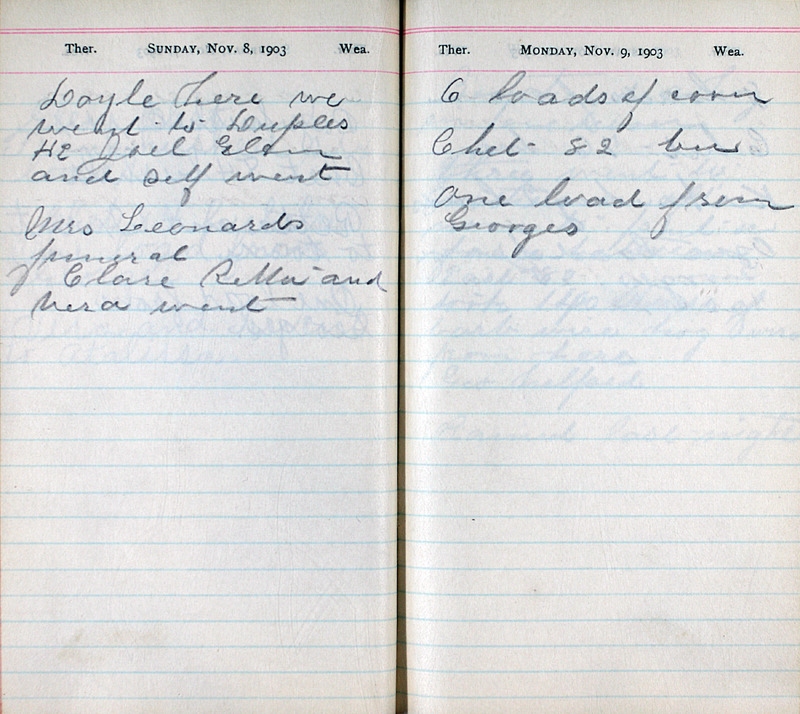 Ther. SUNDAY, NOV. 8, 1903 Wea.
Doyle here we
went to Duples
HE Joel Elton
and self went
Mrs Leonards
funeral
Clare Retta and
Vera went
Ther. MONDAY, NOV. 9, 1903 Wea.
6 loads of corn
Chet 82 bu
One load from
Georges